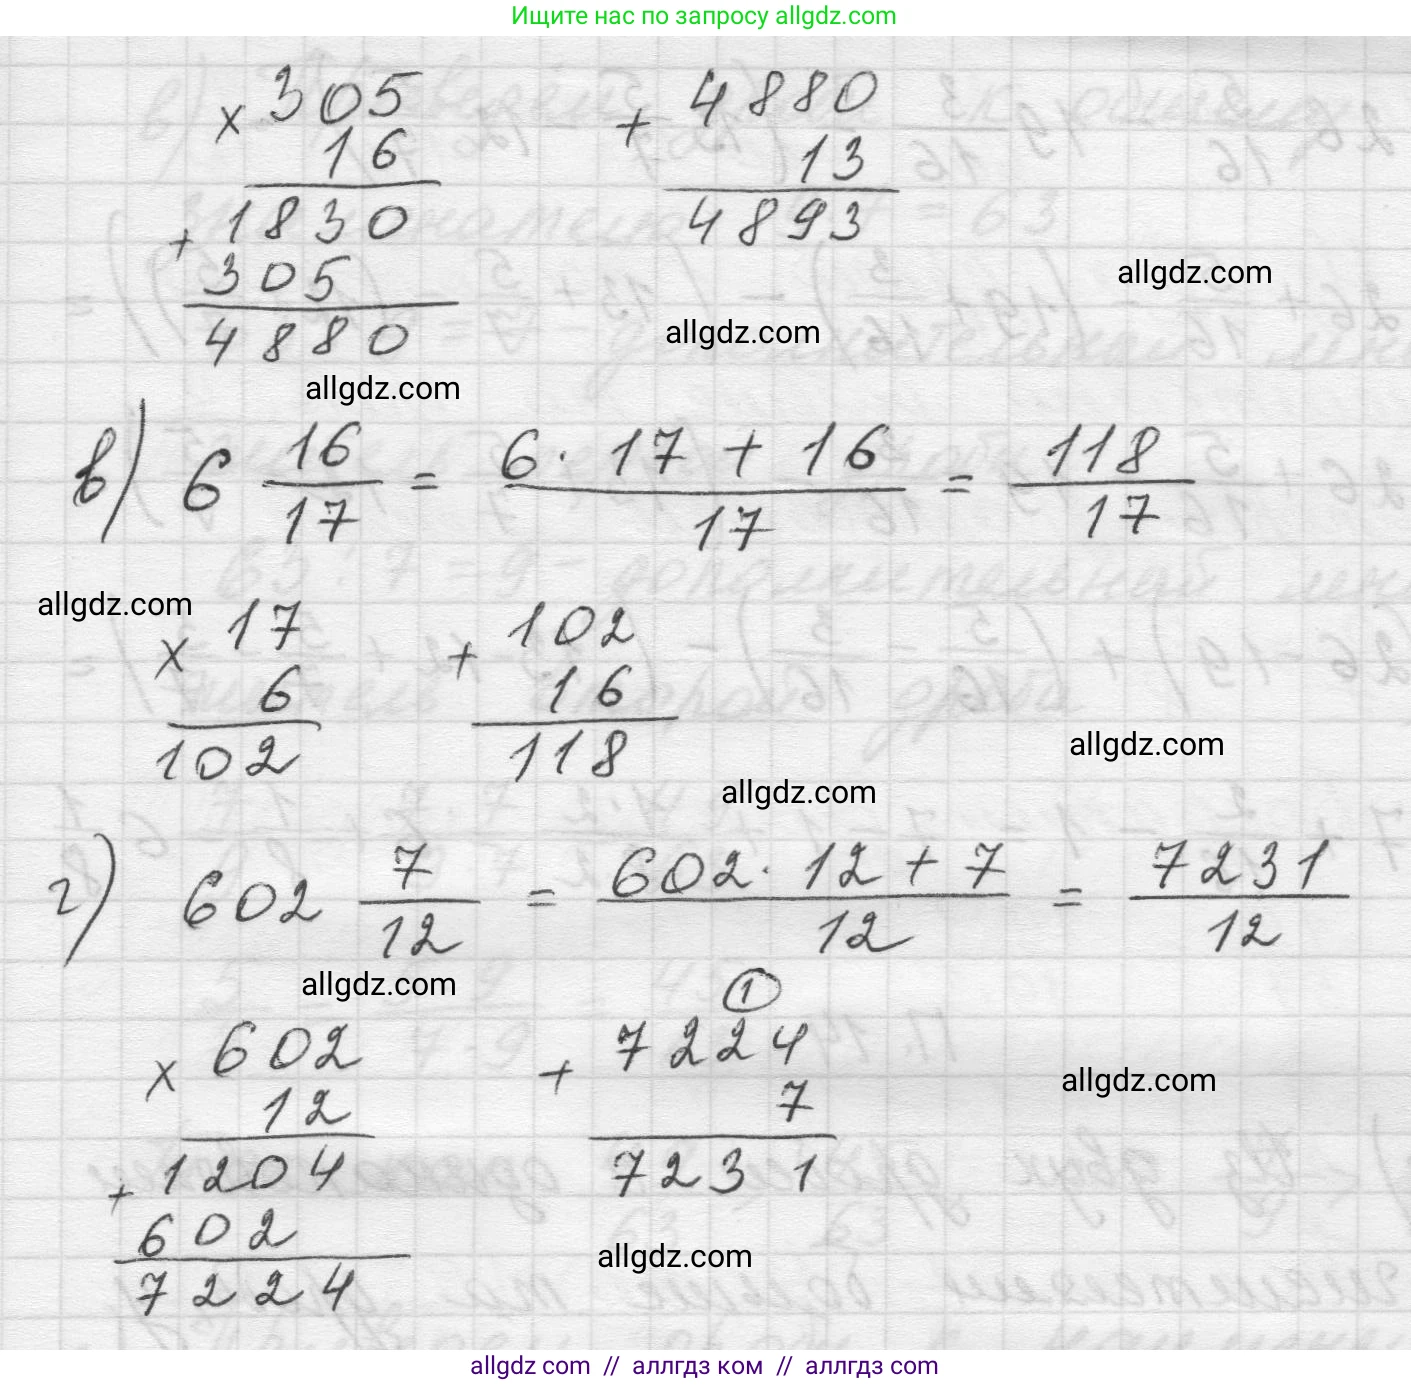 Ищите нас по запросу allgdz.com
× 305 + 4880
16 13
+ 1830 4893
305
4880
allgdz.com
allgdz.com
allgdz.com
в) 6 16/17 = (6 · 17 + 16)/17 = 118/17
allgdz.com
× 17 + 102
6 16
102 118
allgdz.com
allgdz.com
г) 602 7/12 = (602 · 12 + 7)/12 = 7231/12
allgdz.com
1
× 602 + 7224
12 7
+ 1204 7231
602
7224
allgdz.com
allgdz.com
allgdz com // аллгдз ком // allgdz.com